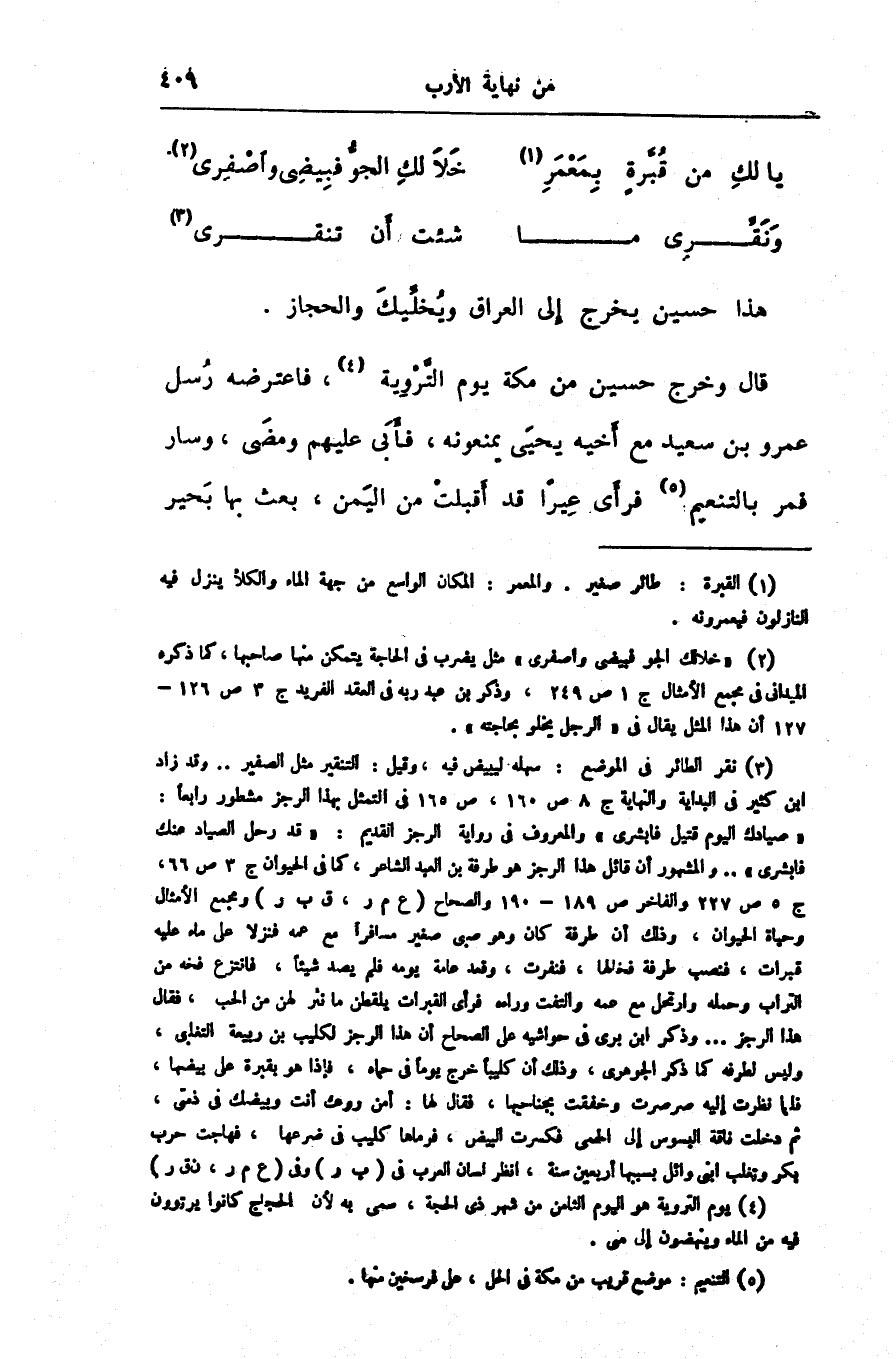 من نهاية الأرب ٤٠٩
يا لكِ من قُبَّرةٍ بِمَعْمَرِ (١) خَلاَ لكِ الجوُّ فبِيضِى وٱصْفِرِى (٢)
وَنَقِّـــرِى مـــا شئت أَن تنقـــرى (٣)
هذا حسين يخرج إلى العراق ويُخَلِّيكَ والحجاز .
قال وخرج حسين من مكة يوم التَّرْوِية (٤) ، فاعترضه رُسل
عمرو بن سعيد مع أَخيه يحيَى يمنعونه ، فأَبَى عليهم ومضَى ، وسار
فمر بالتنعيم (٥) فرأَى عِيرًا قد أَقبلتْ من اليَمن ، بعث بها بَحير
(١) القبرة : طائر صغير . والمعمر : المكان الواسع من جهة الماء والكلأ ينزل فيه
النازلون فيعمرونه .
(٢) « خلالك الجو فبيضى وأصفرى » مثل يضرب فى الحاجة يتمكن منها صاحبها ، كما ذكره
الميدانى فى مجمع الأمثال ج ١ ص ٢٤٩ ، وذكر بن عبد ربه فى العقد الفريد ج ٣ ص ١٢٦ –
١٢٧ أن هذا المثل يقال فى « الرجل يخلو بحاجته » .
(٣) نقر الطائر فى الموضع : سهله ليبيض فيه ، وقيل : التنقير مثل الصفير .. وقد زاد
ابن كثير فى البداية والنهاية ج ٨ ص ١٦٠ ، ص ١٦٥ فى التمثل بهذا الرجز مشطور رابعاً :
« صيادك اليوم قتيل فابشرى » والمعروف فى رواية الرجز القديم : « قد رحل الصياد عنك
فابشرى » .. والمشهور أن قائل هذا الرجز هو طرفة بن العبد الشاعر ، كما فى الحيوان ج ٣ ص ٦٦ ،
ج ٥ ص ٢٢٧ والفاخر ص ١٨٩ – ١٩٠ والصحاح ( ع م ر ، ق ب ر ) ومجمع الأمثال
وحياة الحيوان ، وذلك أن طرفة كان وهو صبى صغير مسافراً مع عمه فنزلا على ماء عليه
قبرات ، فنصب طرفة فخالها ، فنفرت ، وقعد عامة يومه فلم يصد شيئاً ، فانتزع فخه من
التراب وحمله وارتحل مع عمه والتفت وراءه فرأى القبرات يلقطن ما نثر لهن من الحب ، فقال
هذا الرجز ... وذكر ابن برى فى حواشيه على الصحاح أن هذا الرجز لكليب بن ربيعة التغلبى ،
وليس لطرفه كما ذكر الجوهرى ، وذلك أن كليباً خرج يوماً فى حماه ، فإذا هو بقبرة على بيضها ،
فلما نظرت إليه صرصرت وخفقت بجناحيها ، فقال لها : أمن روعك أنت وبيضك فى ذمتى ،
ثم دخلت ناقة البسوس إلى الحمى فكسرت البيض ، فرماها كليب فى ضرعها ، فهاجت حرب
بكر وتغلب ابنى وائل بسببها أربعين سنة ، انظر لسان العرب فى ( ب ر ) وفى ( ع م ر ، نق ر )
(٤) يوم التروية هو اليوم الثامن من شهر ذى الحجة ، سمى به لأن الحجاج كانوا يرتوون
فيه من الماء وينهضون إلى منى .
(٥) التنعيم : موضع قريب من مكة فى الحل ، على فرسخين منها .